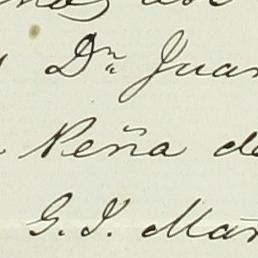 Dn Juan
Peña de
G. I. Mar